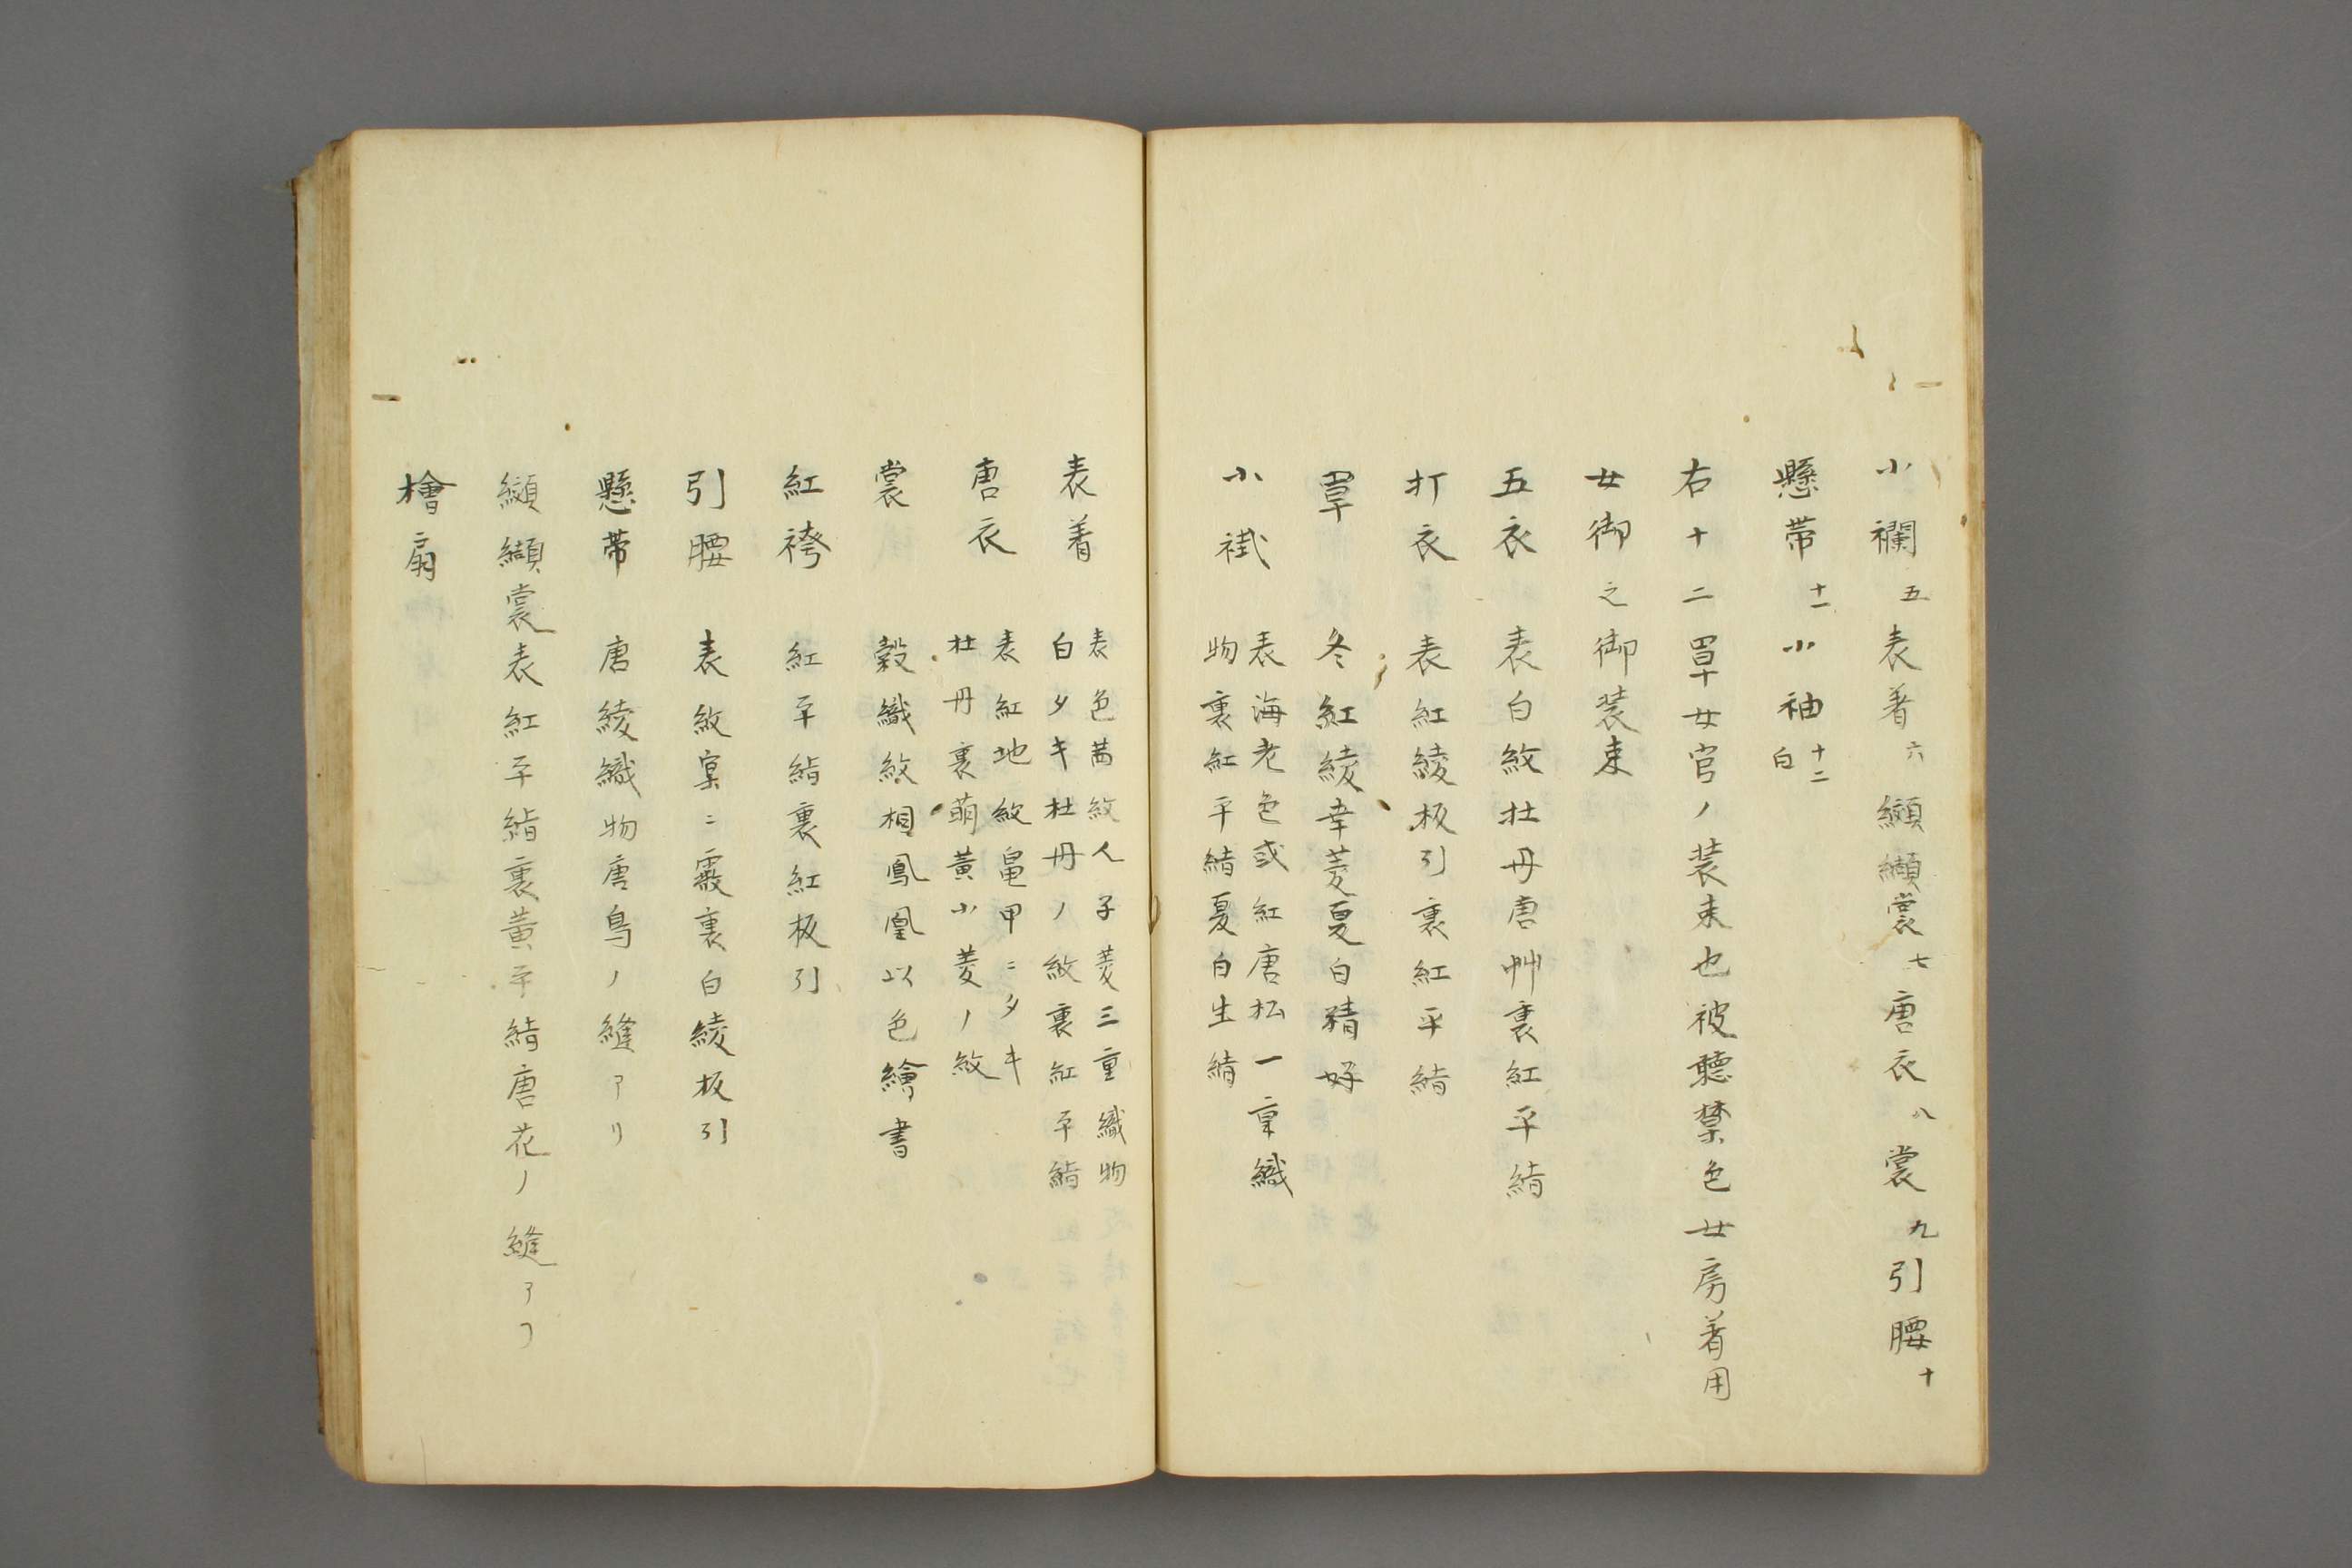 小襴五表着六纐纈裳七唐衣八裳九引腰十
懸帯十一小袖十二白
右十二単女官ノ装束也被聴禁色女房着用
女御之御装束
五衣 表白紋牡丹唐艸裏紅平絹
打衣 表紅綾板引裏紅平絹
単 冬紅綾幸菱夏白精好
小褂 表海老色或紅唐松一重織
物裏紅平絹夏白生絹
表着 表色茜紋人子菱三重織物
白タキ牡丹ノ紋裏紅平絹
唐衣 表紅地紋亀甲ニタキ
牡丹裏萌黄小菱ノ紋
裳 縠織紋相鳳凰以色繪書
紅袴 紅平絹裏紅板引
引腰 表紋窠ニ霰裏白綾板引
懸帯 唐綾織物唐鳥ノ縫アリ
纐纈裳表紅平絹裏黄平絹唐花ノ縫アリ
檜扇